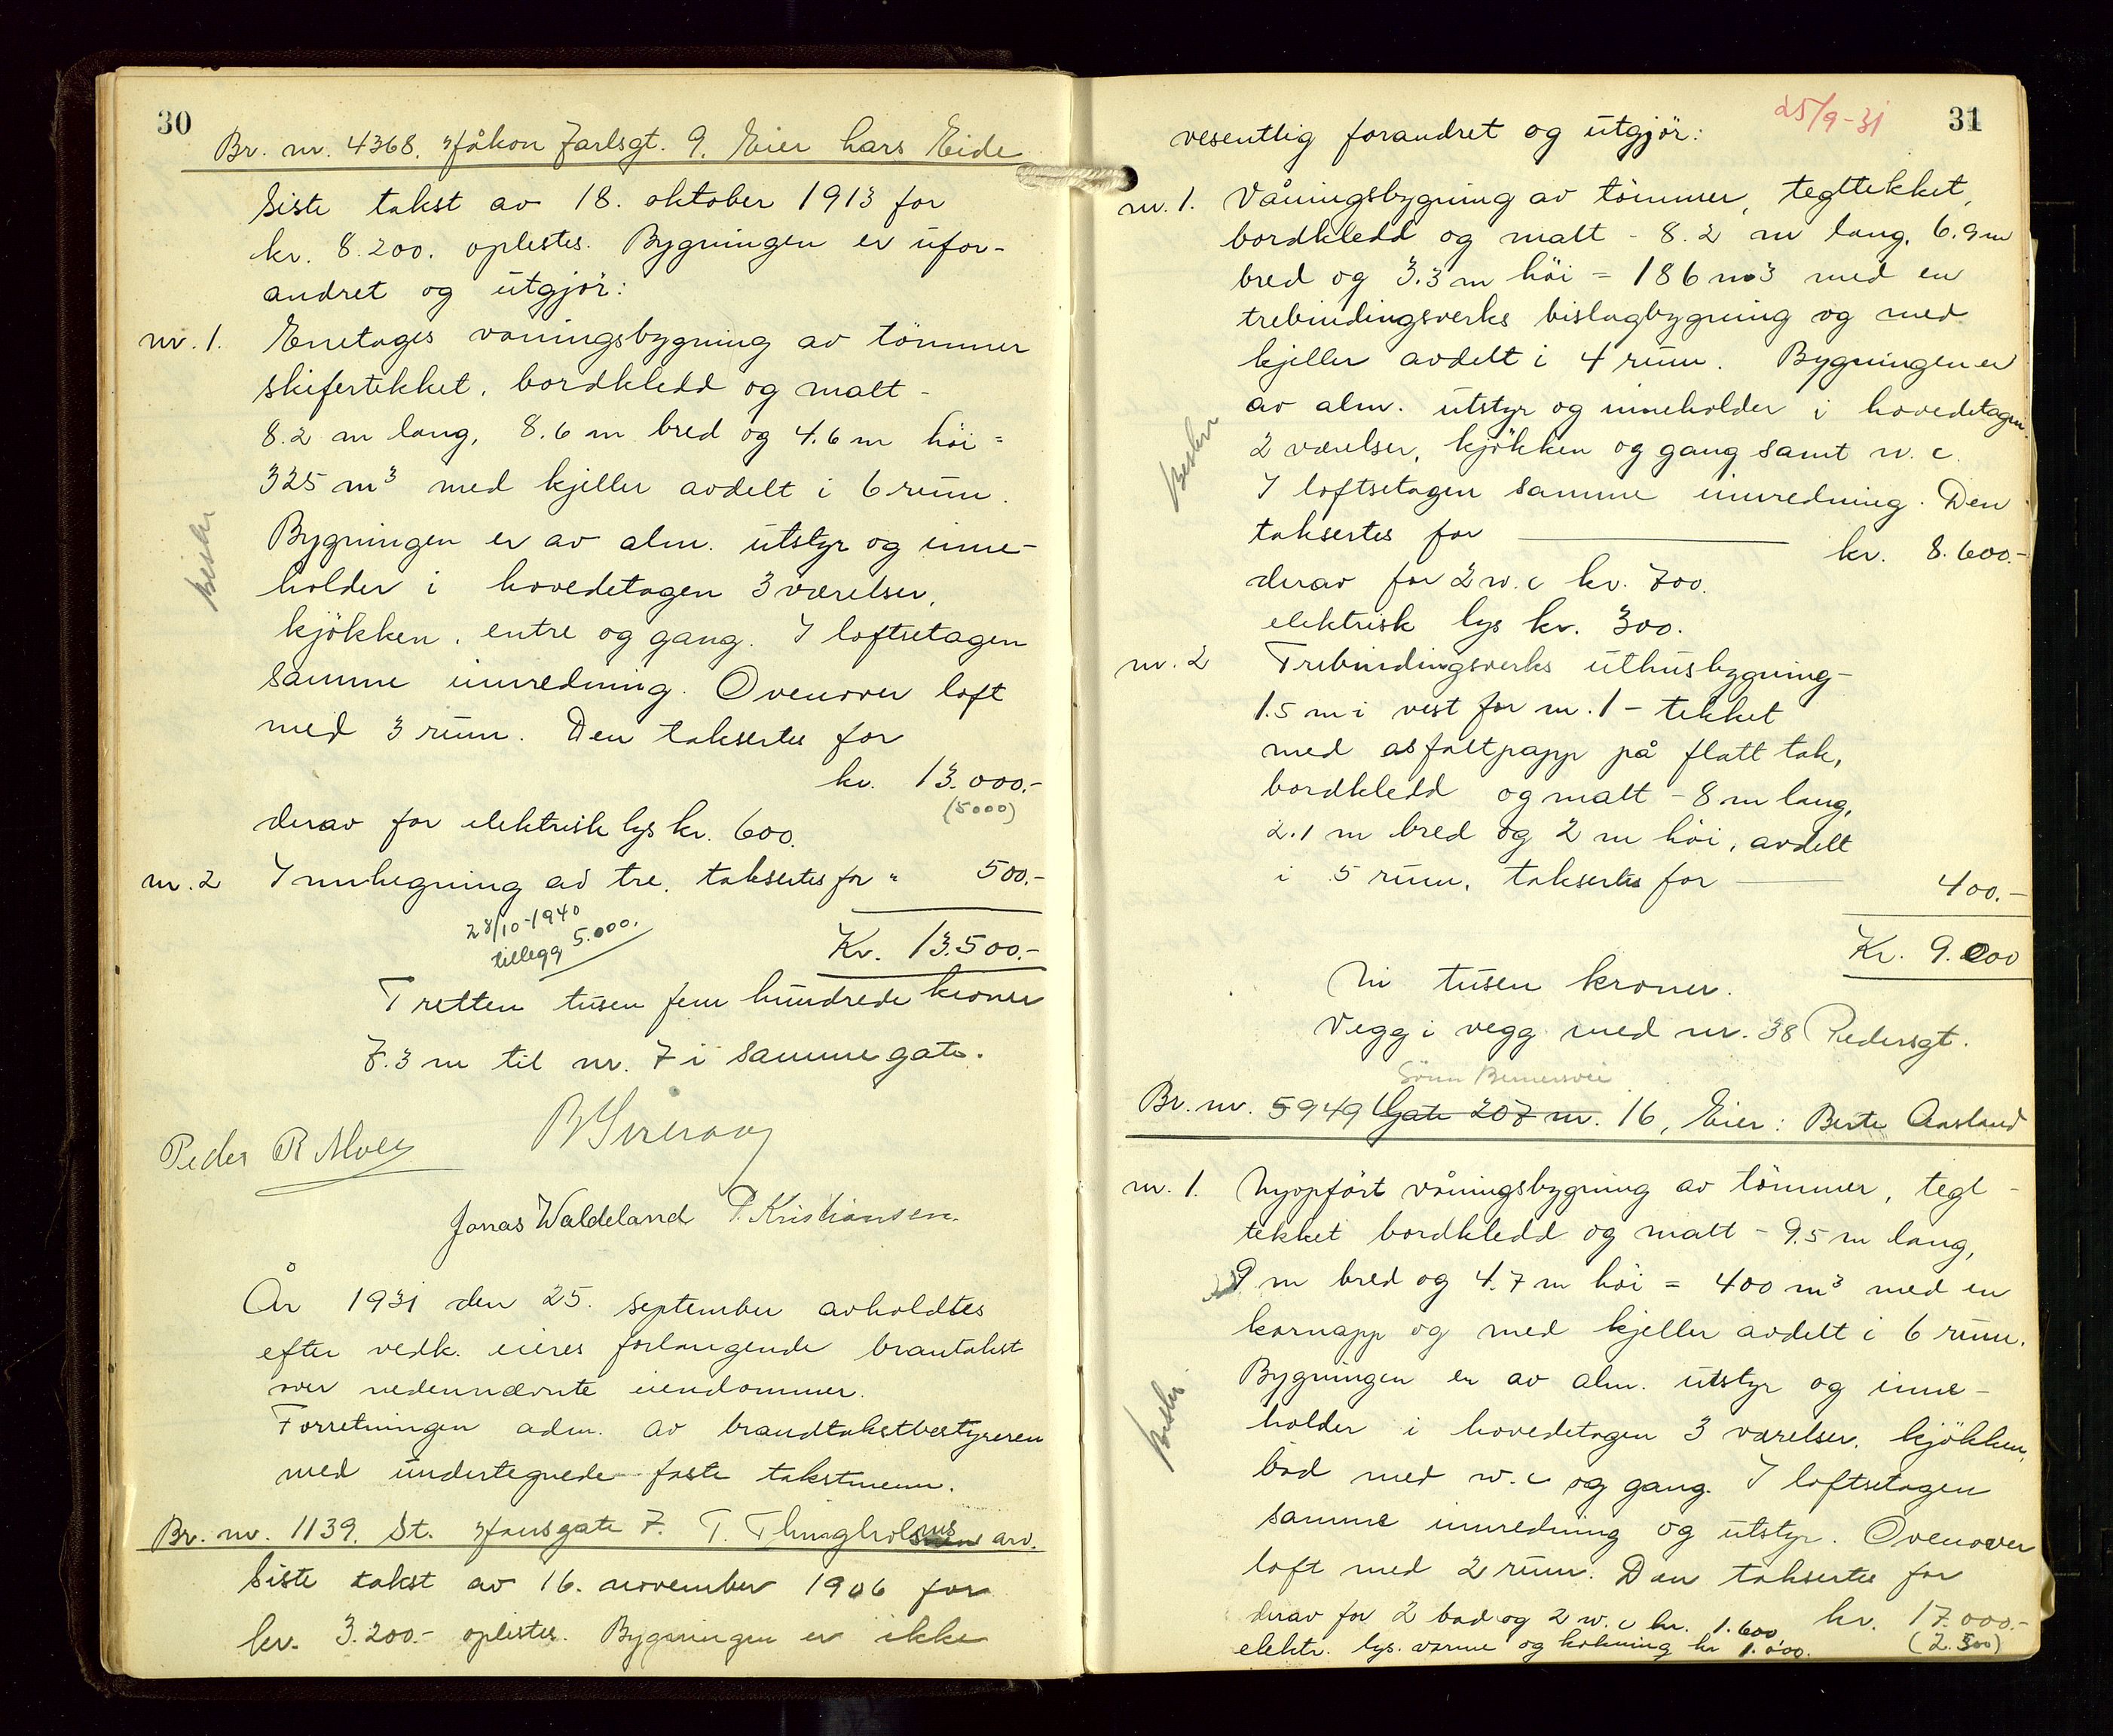 30
Br. nr. 4368. Håkon Jarlsgt. 9. Eier Lars Eide
Siste takst av 18. oktober 1913 for
kr. 8.200. oplestes. Bygningen er ufor-
andret og utgjør:
nr. 1. Enetages våningsbygning av tømmer
skifertekket, bordkledd og malt -
8.2 m lang, 8.6 m bred og 4.6 m høi =
325 m³ med kjeller avdelt i 6 rum.
Bygningen er av alm. utstyr og inne-
holder i hovedetagen 3 værelser,
kjøkken, entre og gang. I loftsetagen
samme innredning. Ovenover loft
med 3 rum. Den taksertes for
kr. 13.000.-
(5000)
derav for elektrisk lys kr. 600.
nr. 2 Innhegning av tre, taksertes for " 500.-
28/10-1940
tillegg 5.000.
Kr. 13.500.-
Tretten tusen fem hundrede kroner
7.3 m til nr. 7 i samme gate.
Peder R
Jonas Waldeland P. Kristiansen.
År 1931 den 25. september avholdtes
efter vedk. eieres forlangende branntakst
over nedennævnte eiendommer.
Forretningen adm. av brandtakstbestyreren
med undertegnede faste takstmenn.
Br. nr. 1139. St. Hansgate 7. T. arv.
Siste takst av 16. november 1906 for
kr. 3.200.- oplestes. Bygningen er ikke
25/9-31
31
vesentlig forandret og utgjør:
nr. 1. Våningsbygning av tømmer, tegltekket,
bordkledd og malt - 8.2 m lang, 6.9 m
bred og 3.3 m høi = 186 m3 med en
trebindingsverks bislagbygning og med
kjeller avdelt i 4 rum. Bygningen er
av alm. utstyr og inneholder i hovedetagen
2 værelser, kjøkken og gang samt w.c.
I loftsetagen samme innredning. Den
taksertes for kr. 8.600.-
derav for 2 w.c kr. 700.
elektrisk lys kr. 300.
nr. 2 Trebindingsverks uthusbygning -
1.5 m i vest for nr. 1 - tekket
med asfaltpapp på flatt tak,
bordkledd og malt - 8 m lang,
2.1 m bred og 2 m høi, avdelt
i 5 rum, taksertes for 400.-
Kr. 9.000
Ni tusen kroner.
Vegg i vegg med nr. 38 Pedersgt.
Br. nr. 5949 Gate 207 nr. 16, Eier: Berte Aasland
nr. 1. Nyopført våningsbygning av tømmer, tegl -
tekket bordkledd og malt - 9.5 m lang,
9 m bred og 4.7 m høi = 400 m³ med en
karnapp og med kjeller avdelt i 6 rum.
Bygningen er av alm. utstyr og inne-
holder i hovedetagen 3 værelser, kjøkken,
bad med w.c og gang. I loftsetagen
samme innredning og utstyr. Ovenover
loft med 2 rum. Den taksertes for
derav for 2 bad og 2 w.c kr. 1.600 kr. 17.000.-
elektr. lys. varme og kokning kr 1.000. (2.500)